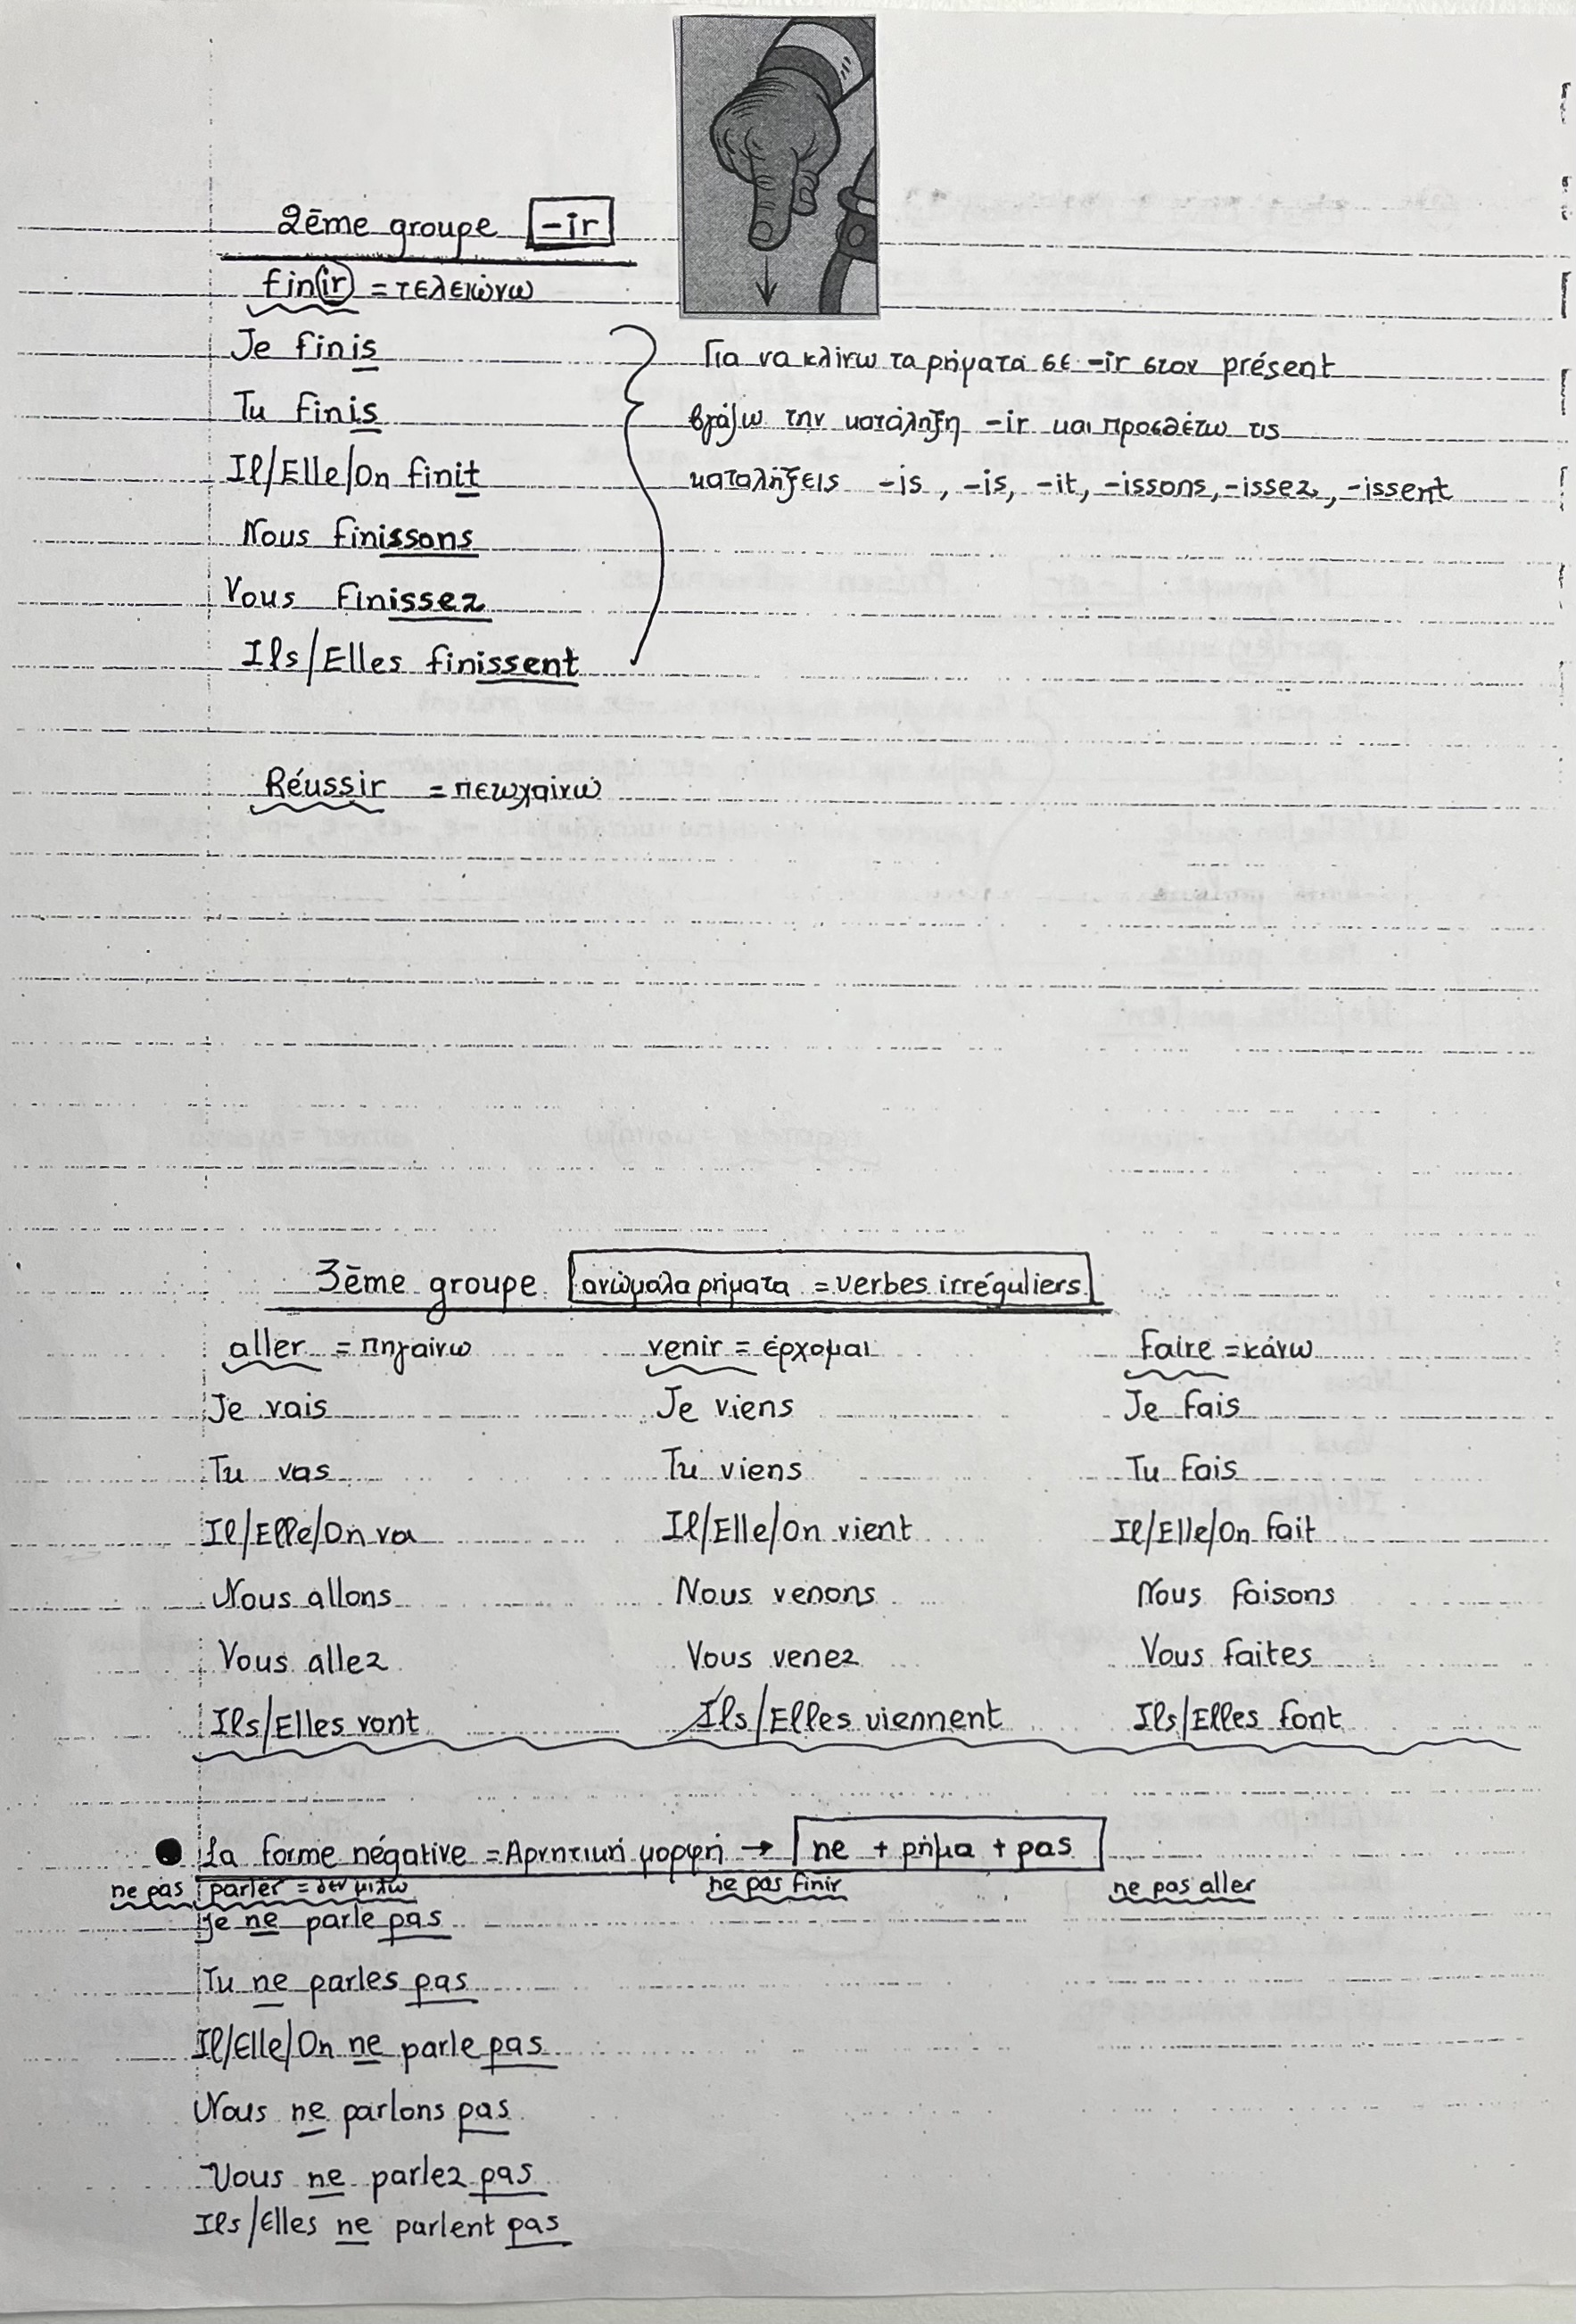 2ēme groupe -ir
finir = τελειώνω
Je finis
Tu finis
Il/Elle/On finit
Nous finissons
Vous finissez
Ils/Elles finissent
Για να κλίνω τα ρήματα σε -ir στον présent
βγάζω την κατάληξη -ir και προσθέτω τις
καταλήξεις -is, -is, -it, -issons, -issez, -issent
Réussir = πετυχαίνω
3ēme groupe ανώμαλα ρήματα = verbes irréguliers
aller = πηγαίνω
Je vais
Tu vas
Il/Elle/On va
Nous allons
Vous allez
Ils/Elles vont
venir = έρχομαι
Je viens
Tu viens
Il/Elle/On vient
Nous venons
Vous venez
Ils/Elles viennent
Faire = κάνω
Je fais
Tu fais
Il/Elle/On fait
Nous faisons
Vous faites
Ils/Elles font
La forme négative = Αρνητική μορφή → ne + ρήμα + pas
ne pas parler = δεν μιλω
Je ne parle pas
Tu ne parles pas
Il/Elle/On ne parle pas
Nous ne parlons pas
Vous ne parlez pas
Ils/Elles ne parlent pas
ne pas finir
ne pas aller